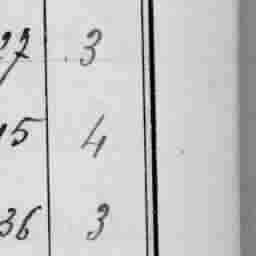 27 3
15 4
36 3